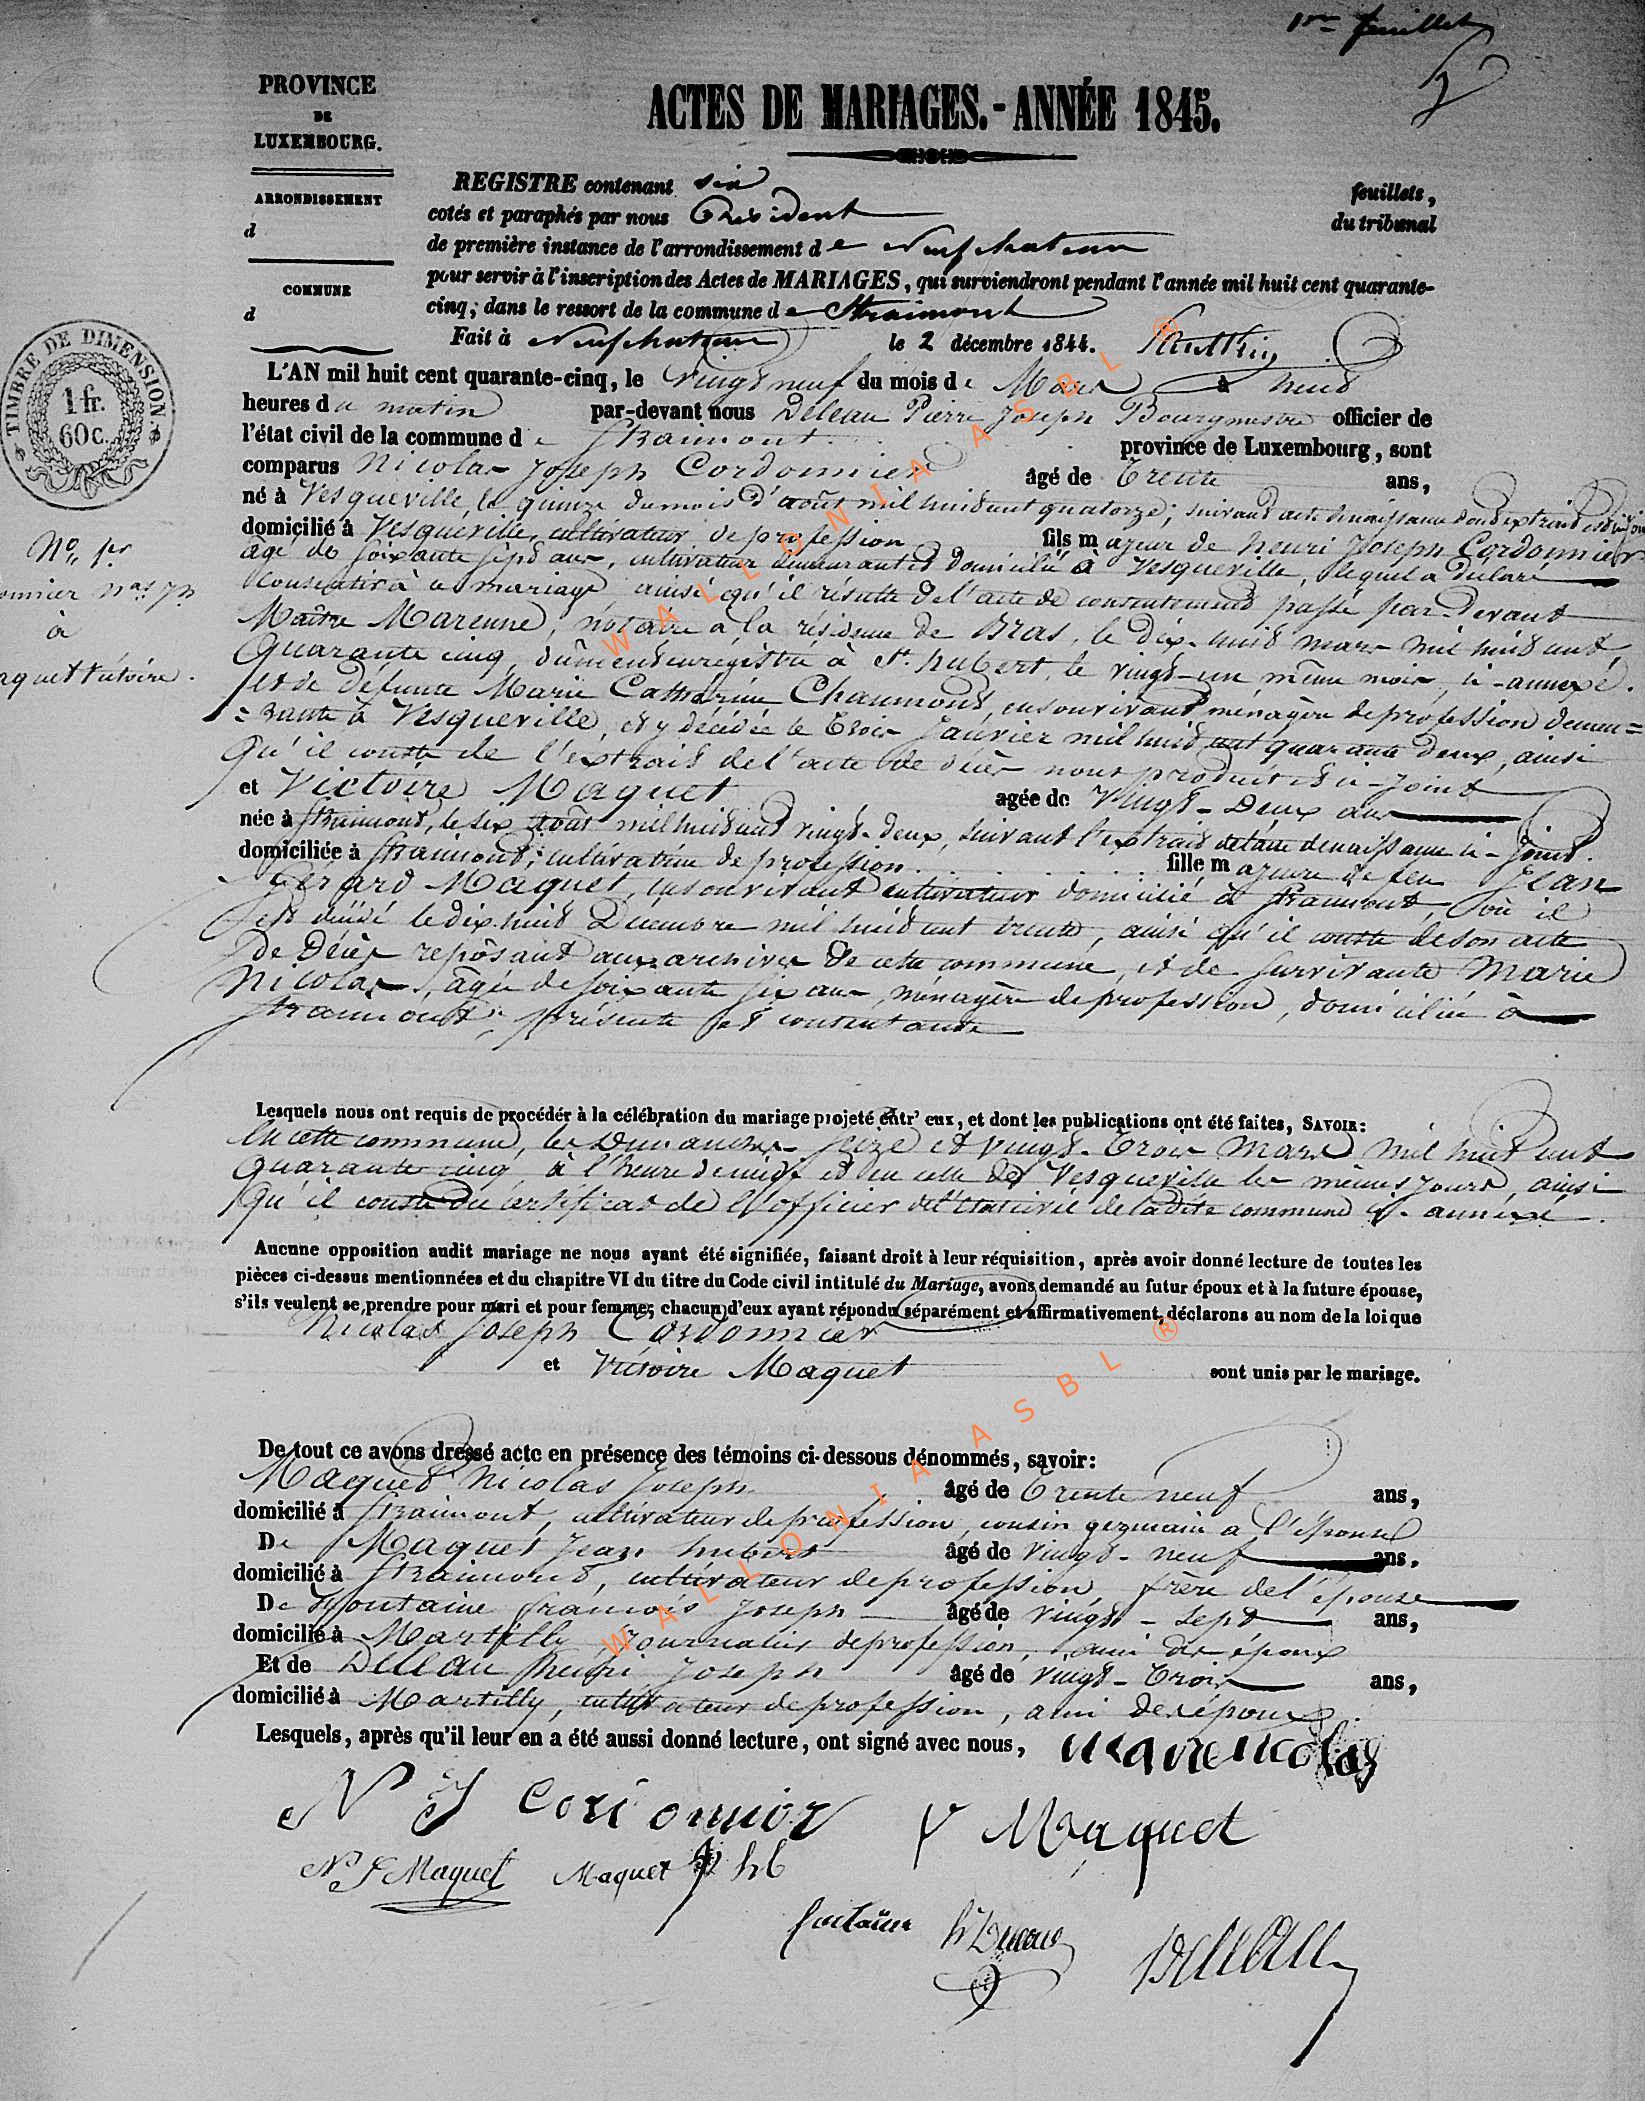 1er feuillet
PROVINCE
DE
LUXEMBOURG.
ARRONDISSEMENT
d
COMMUNE
d
TIMBRE DE DIMENSION
1 fr.
60 c.
ACTES DE MARIAGES. - ANNÉE 1845.
REGISTRE contenant six feuillets,
cotés et paraphés par nous Président du tribunal
de première instance de l'arrondissement de Neufchateau
pour servir à l'inscription des Actes de MARIAGES, qui surviendront pendant l'année mil huit cent quarante-
cinq, dans le ressort de la commune de Straimont
Fait à Neufchateau le 2 décembre 1844.
L'AN mil huit cent quarante-cinq, le vingt neuf du mois de Mars à huit
heures du matin par-devant nous Deleau Pierre Joseph Bourgmestre officier de
l'état civil de la commune de Straimont province de Luxembourg, sont
comparus Nicolas Joseph Cordonnier âgé de Trente ans,
né à Vesqueville, le quinze du mois d'août mil huit cent quatorze, suivant acte de naissance dont extrait est ci-joint
domicilié à Vesqueville, cultivateur de profession fils majeur de henri Joseph Cordonnier
âgé de soixante sept ans, cultivateur demeurant et domicilié à Vesqueville, lequel a déclaré
consentir à ce mariage ainsi qu'il résulte de l'acte de consentement passé par-devant
Maître Marenne, notaire à la résidence de Bras, le dix-huit mars mil huit cent
Quarante cinq, dûment enregistré à St. hubert, le vingt-un même mois, ci-annexé.
et de défunte Marie Catherine Chaumont, en son vivant ménagère de profession demeu=
=rante à Vesqueville, et y décédée le Trois Janvier mil huit cent quarante deux, ainsi
Qu'il conste de l'extrait de l'acte de décès nous produit et ci-joint
et Victoire Maquet agée de Vingt-Deux ans
née à Straimont, le six août mil huit cent vingt-deux, suivant l'extrait de l'acte de naissance ci-joint.
domiciliée à Straimont, cultivatrice de profession fille majeure de feu Jean
Gérard Maquet, en son vivant cultivateur domicilié à Straimont, où il
est décédé le dix-huit Décembre mil huit cent trente, ainsi qu'il conste de son acte
de Décès reposant aux archives de cette commune, et de survivante Marie
Nicolas, âgée de soixante six ans, ménagère de profession, domiciliée à
Straimont, présente et consentante
No. 1er
onnier nas jh
à
aquet Victoire.
Lesquels nous ont requis de procéder à la célébration du mariage projeté entr' eux, et dont les publications ont été faites, SAVOIR:
En cette commune, les Dimanches seize et vingt-Trois Mars mil huit cent
Quarante cinq à l'heure de midi et en celle de Vesqueville les mêmes jours, ainsi
Qu'il conste du certificat de l'officier de l'état civil de la dite commune ci-annexé.
Aucune opposition audit mariage ne nous ayant été signifiée, faisant droit à leur réquisition, après avoir donné lecture de toutes les
pièces ci-dessus mentionnées et du chapitre VI du titre du Code civil intitulé du Mariage, avons demandé au futur époux et à la future épouse,
s'ils veulent se prendre pour mari et pour femme; chacun d'eux ayant répondu séparément et affirmativement, déclarons au nom de la loi que
Nicolas Joseph Cordonnier
et Victoire Maquet sont unis par le mariage.
De tout ce avons dressé acte en présence des témoins ci-dessous dénommés, savoir:
Maquet Nicolas Joseph âgé de Trente neuf ans,
domicilié à Straimont, cultivateur de profession, cousin germain à l'épouse
De Maquet Jean hubert âgé de vingt-neuf ans,
domicilié à Straimont, cultivateur de profession, frère de l'épouse
De Fontaine françois Joseph âgé de vingt-sept ans,
domicilié à Martilly, journalier de profession, ami des époux
Et de Deleau henri Joseph âgé de vingt-Trois ans,
domicilié à Martilly, cultivateur de profession, ami des époux.
Lesquels, après qu'il leur en a été aussi donné lecture, ont signé avec nous,
marie nicolas
N J Cordonnier
V Maquet
N J Maquet
Maquet J hb
fontaine
h Deleau
Deleau
WALLONIA ASBL ®
WALLONIA ASBL ®